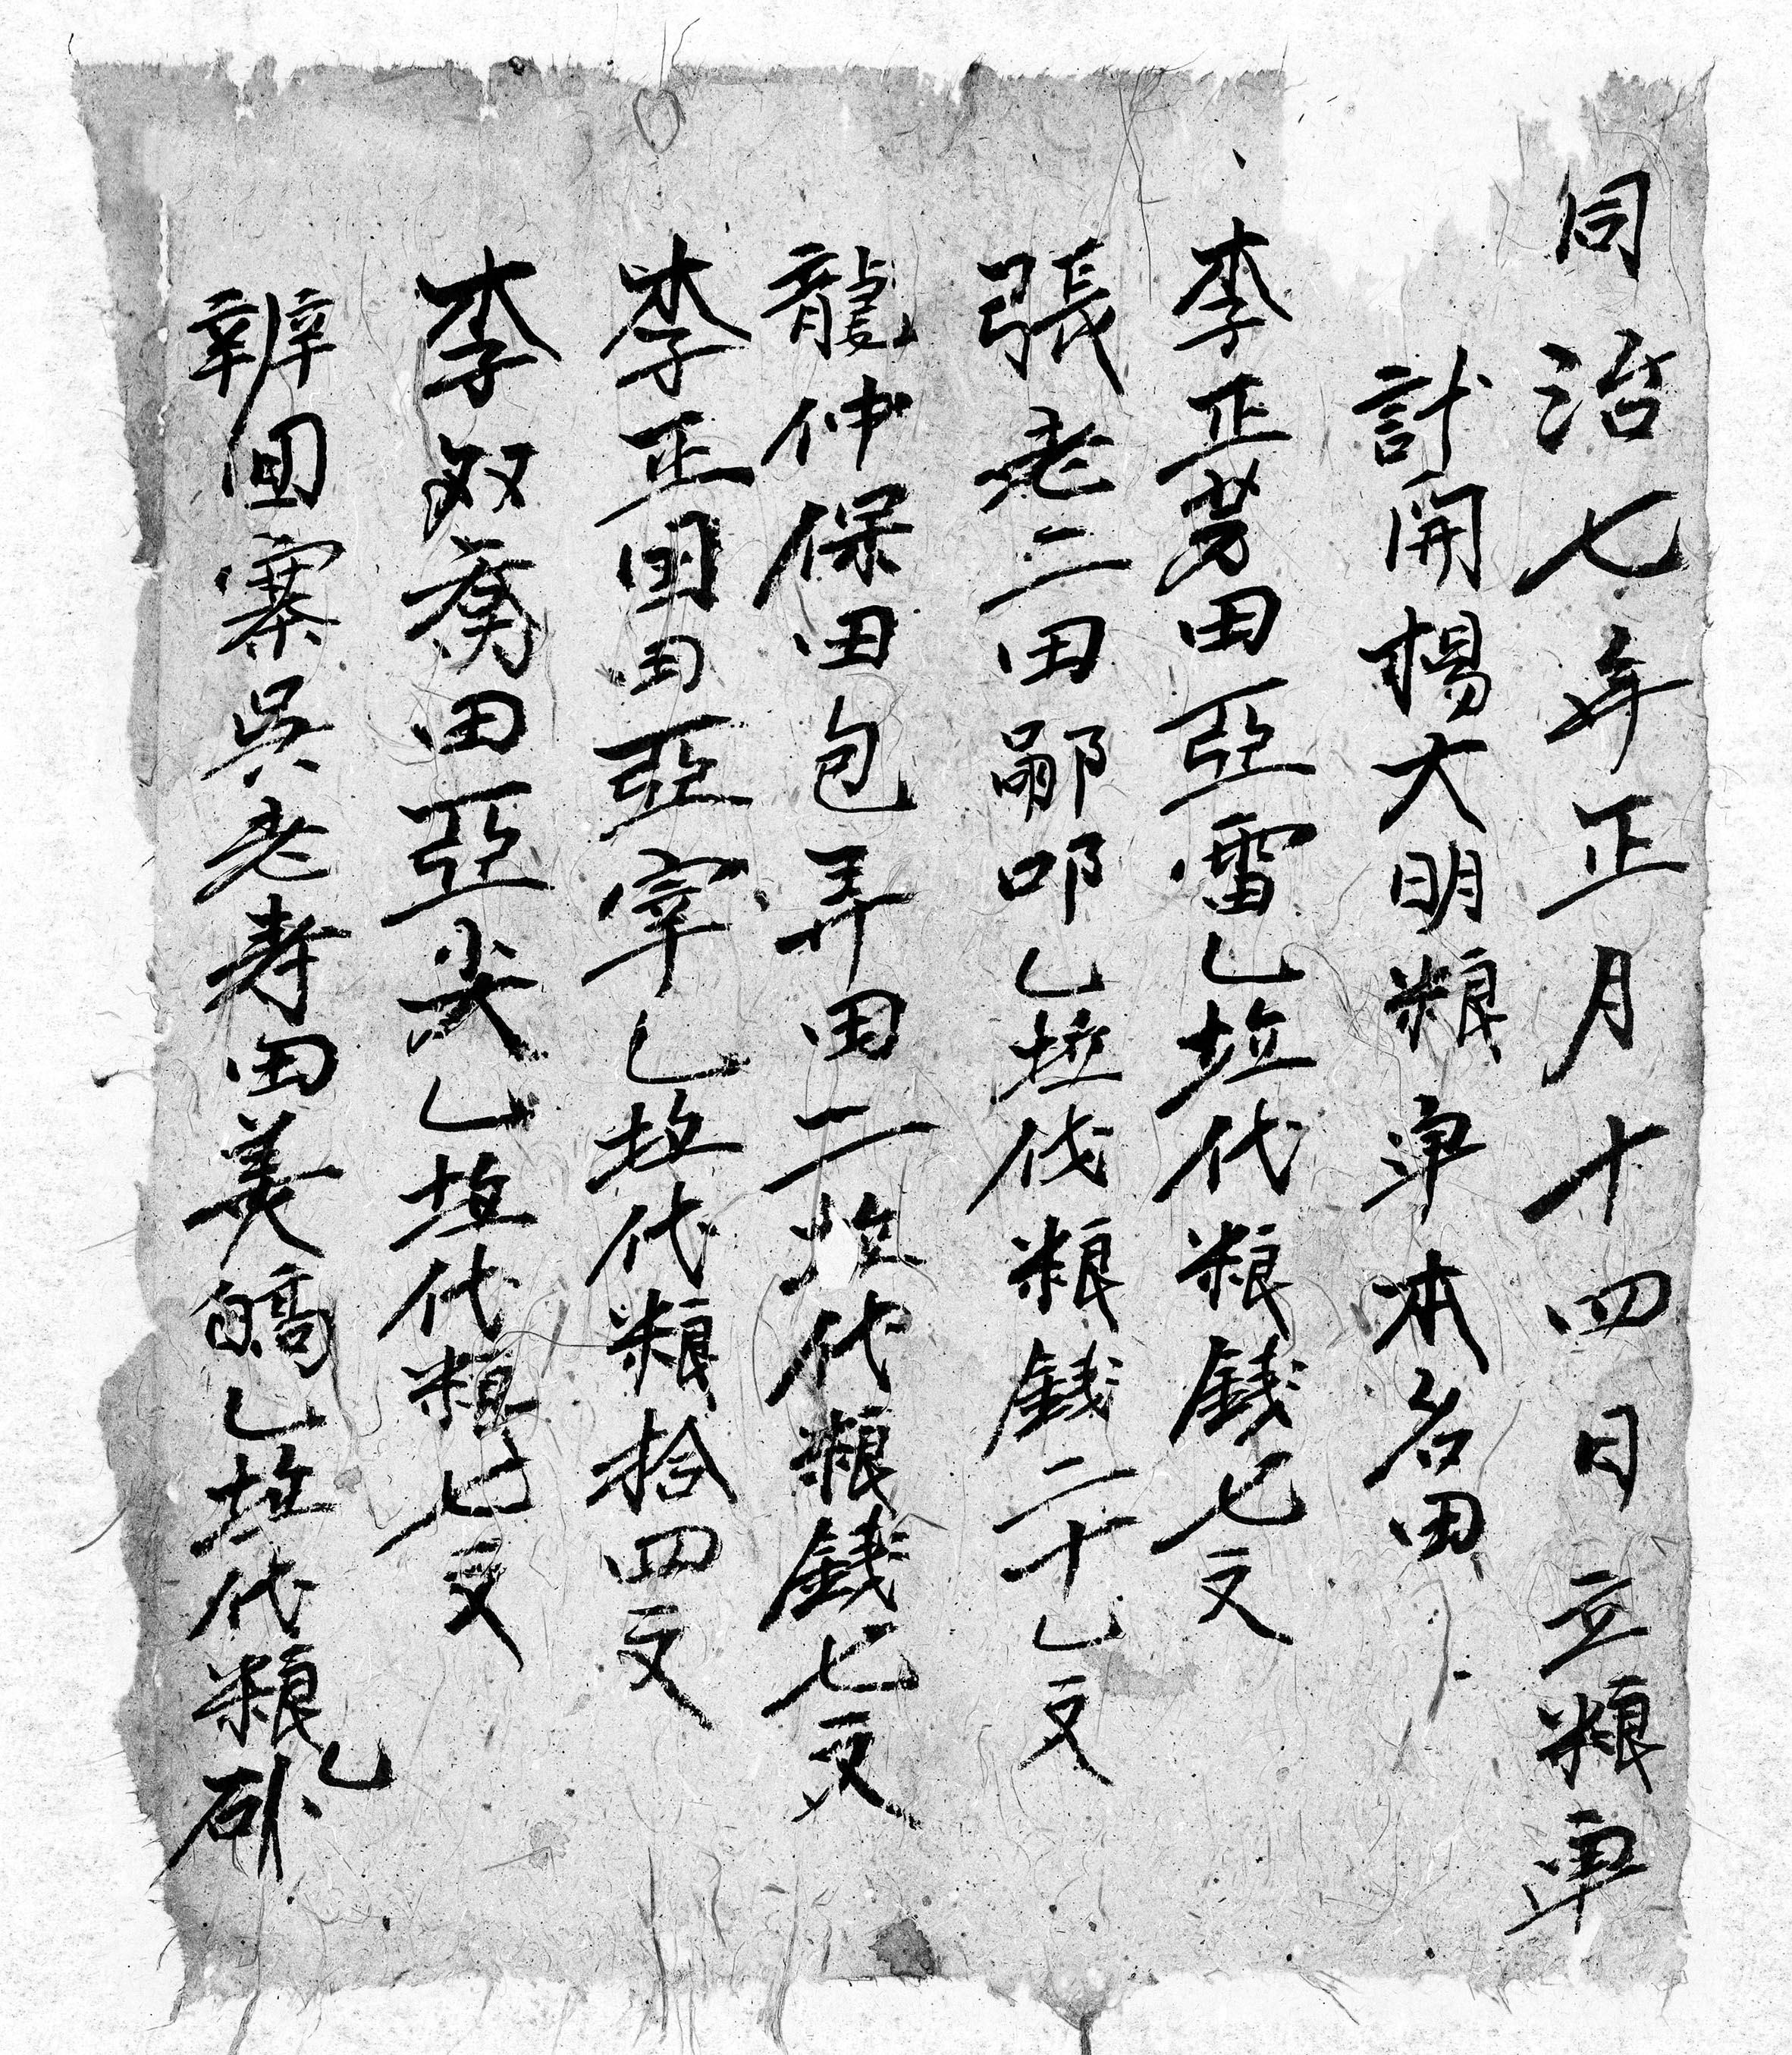 同治七年正月十四日立粮单
計開楊大明粮单本名田
李正芳田亞雷乙坵代粮錢七文
張老二田鄙叩乙坵伐粮錢二十乙文
龍仲保田包弄田二坵代粮錢七文
李正田亞宰乙坵代粮拾四文
李奴喬田亞尖乙坵代粮七文
辦囬寨吳老寿田美皜乙坵代粮乙